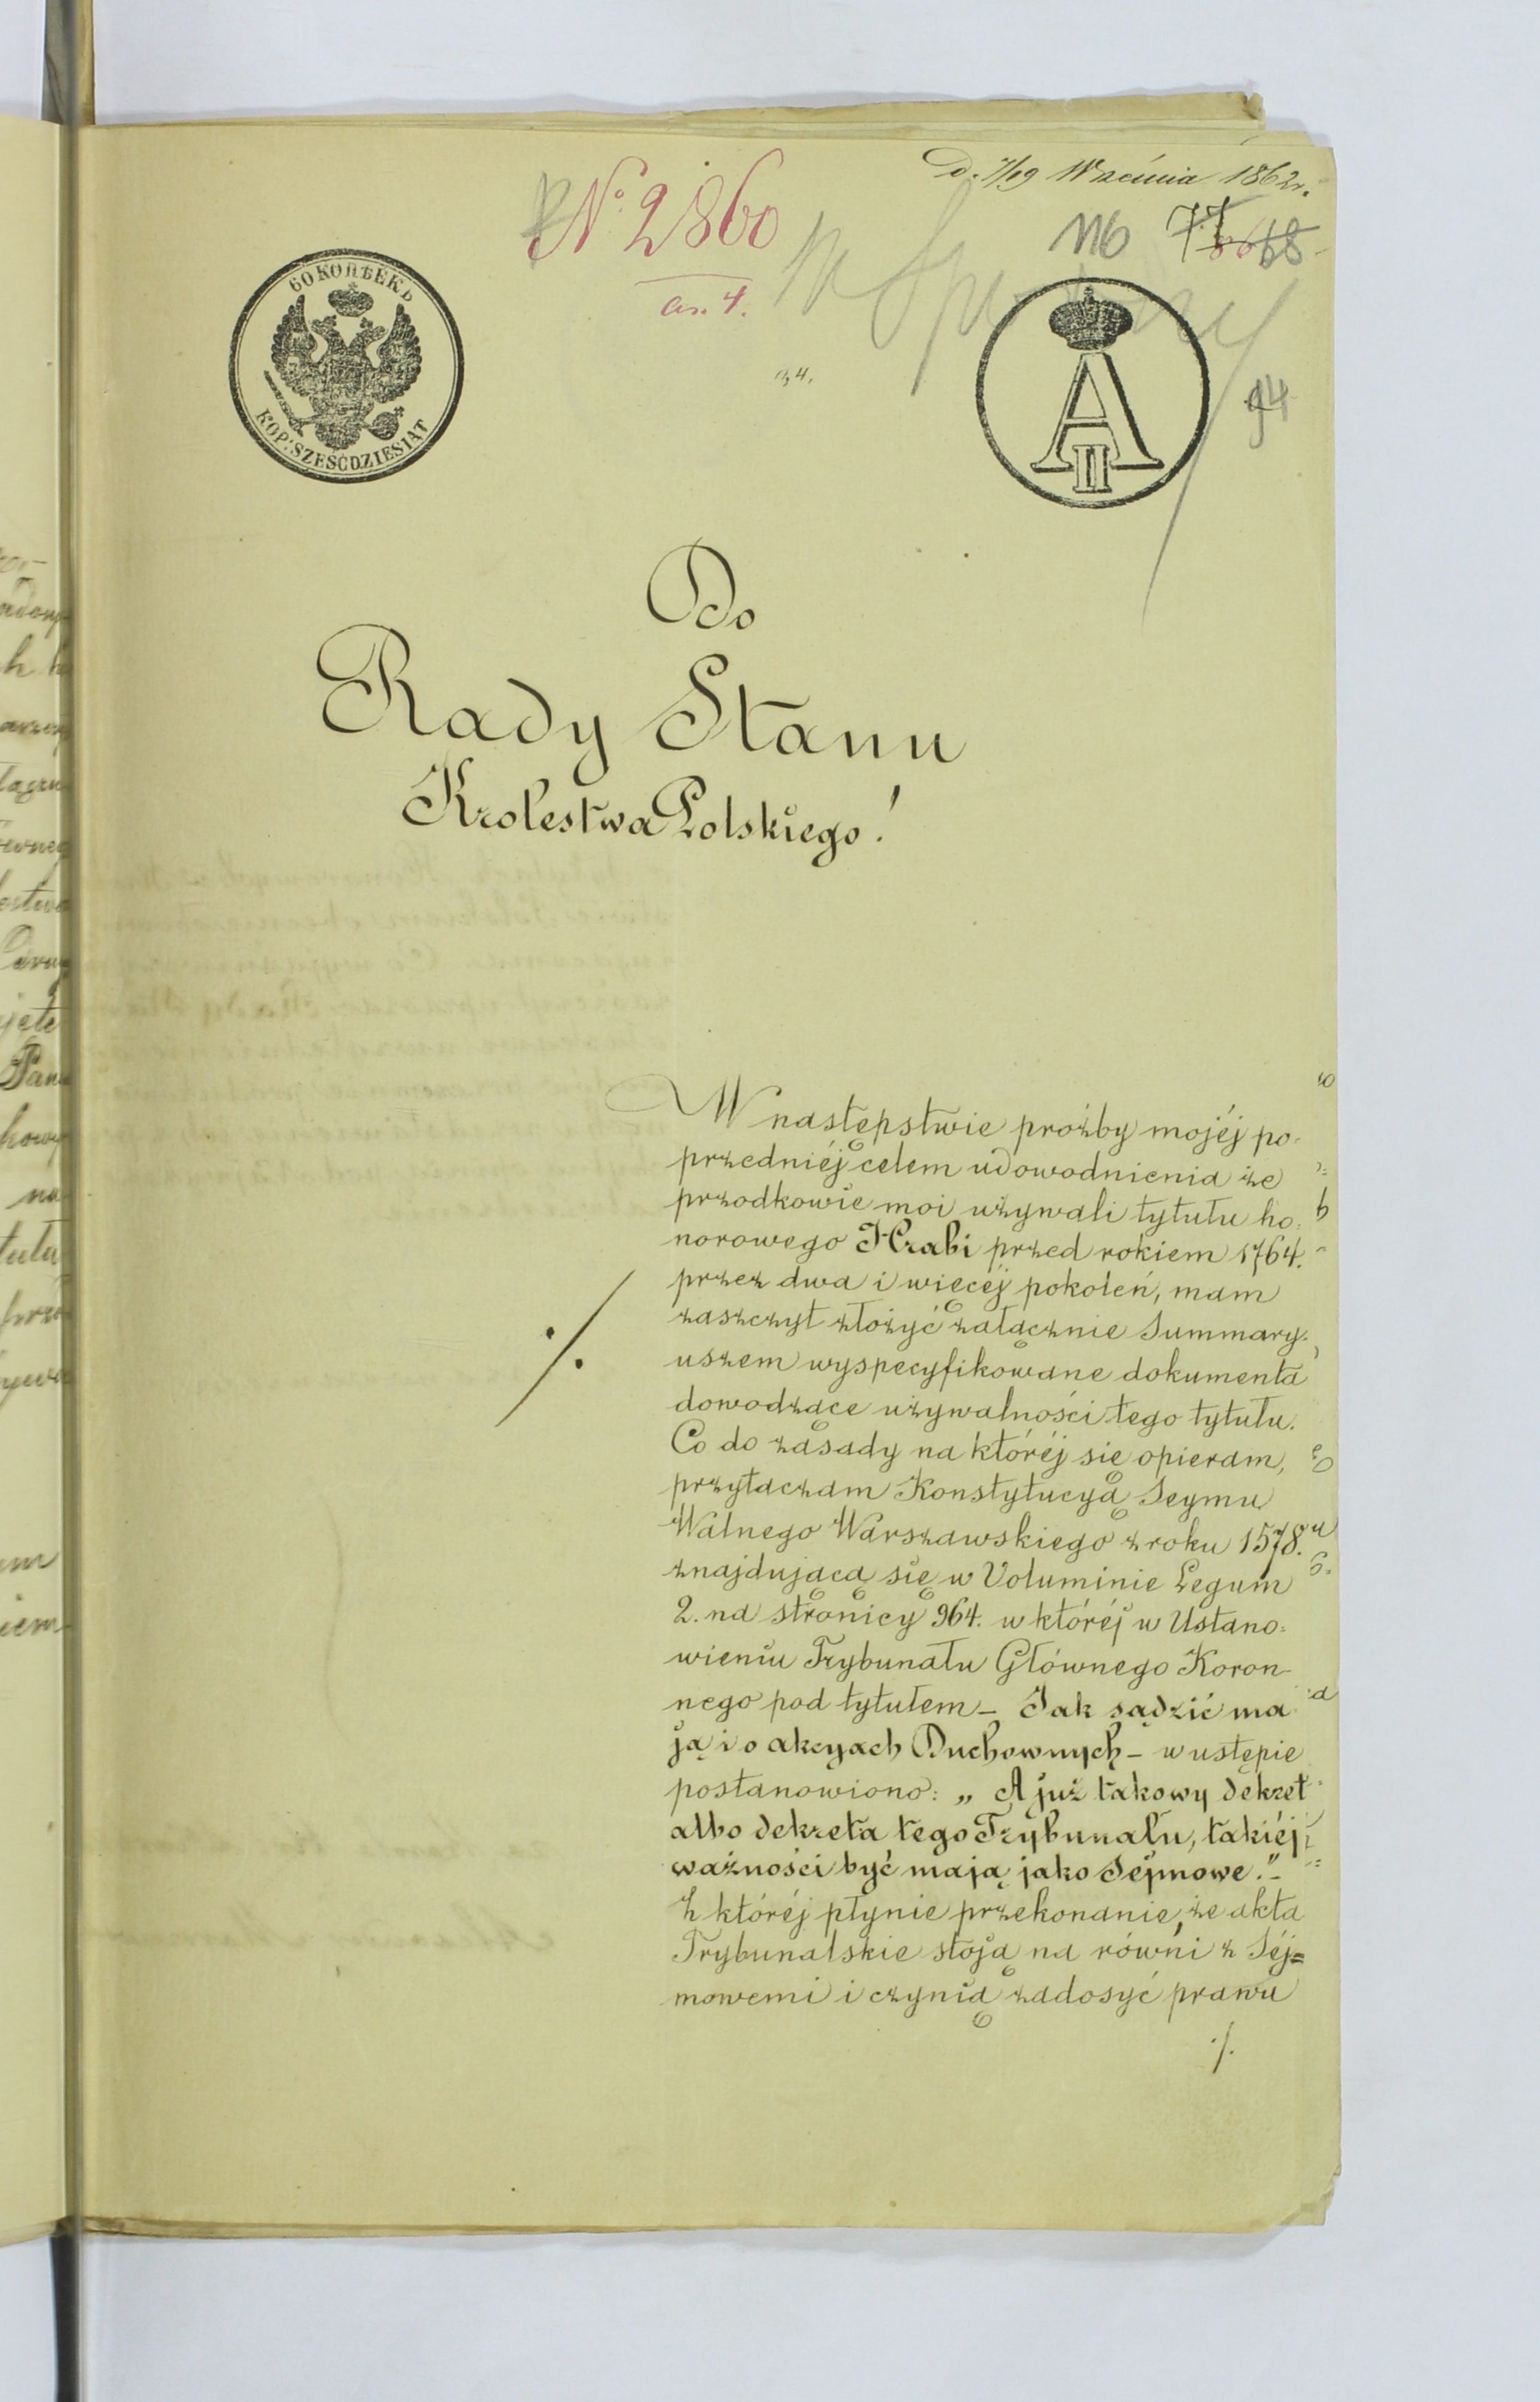 D. 7/19 Września 1862r.
№ 2860
116
an. 4.
60 КОПѢЕКЪ
KOP: SZEŚĆDZIESIĄT
A II
94
Do
Rady Stanu
Krolestwa Polskiego!
W następstwie proźby mojéj po-
przedniéj celem udowodnienia że
przodkowie moi używali tytułu ho=
norowego Hrabi przed rokiem 1764.
przez dwa i więcéj pokoleń, mam
zaszczyt złożyć załącznie Summary-
uszem wyspecyfikowane dokumenta
dowodzące używalności tego tytułu.
Co do zasady na któréj się opieram,
przytaczam Konstytucyą Seymu
Walnego Warszawskiego z roku 1578.
znajdującą się w Voluminie Legum
2. na stronicy 964. w któréj w Ustano=
wieniu Trybunału Głównego Koron-
nego pod tytułem – Jak sądzić ma
ją i o akcyach Duchownych – w ustępie
postanowiono: „A już takowy dekret
albo dekreta tego Trybunału, takiéj
ważności być mają jako Sejmowe." –
Z któréj płynie przekonanie, że akta
Trybunalskie stoją na równi z Séj=
mowemi i czynią zadosyć prawu
./.